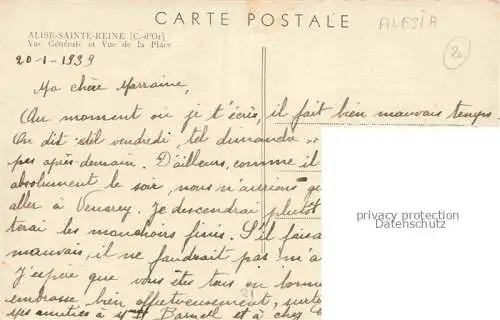 CARTE POSTALE
ALESIA
ALISE-SAINTE-REINE [C.-d'Or]
Vue Générale et Vue de la Place
20-1-1939
24
Ma chère Marraine,
Au moment où je t'écris, il fait bien mauvais temps.
On dit : tel vendredi, tel dimanche
pas après-demain. D'ailleurs, comme il
absolument le soir, nous n'aurions
aller à Venarey. Je descendrai plutôt
terai les mouchoirs finis. S'il faisa
mauvais, il ne faudrait pas m'a
J'espère que vous êtes tous en bonne
embrasse bien affectueusement,
Mes amitiés à Barnet et à chez
privacy protection
Datenschutz